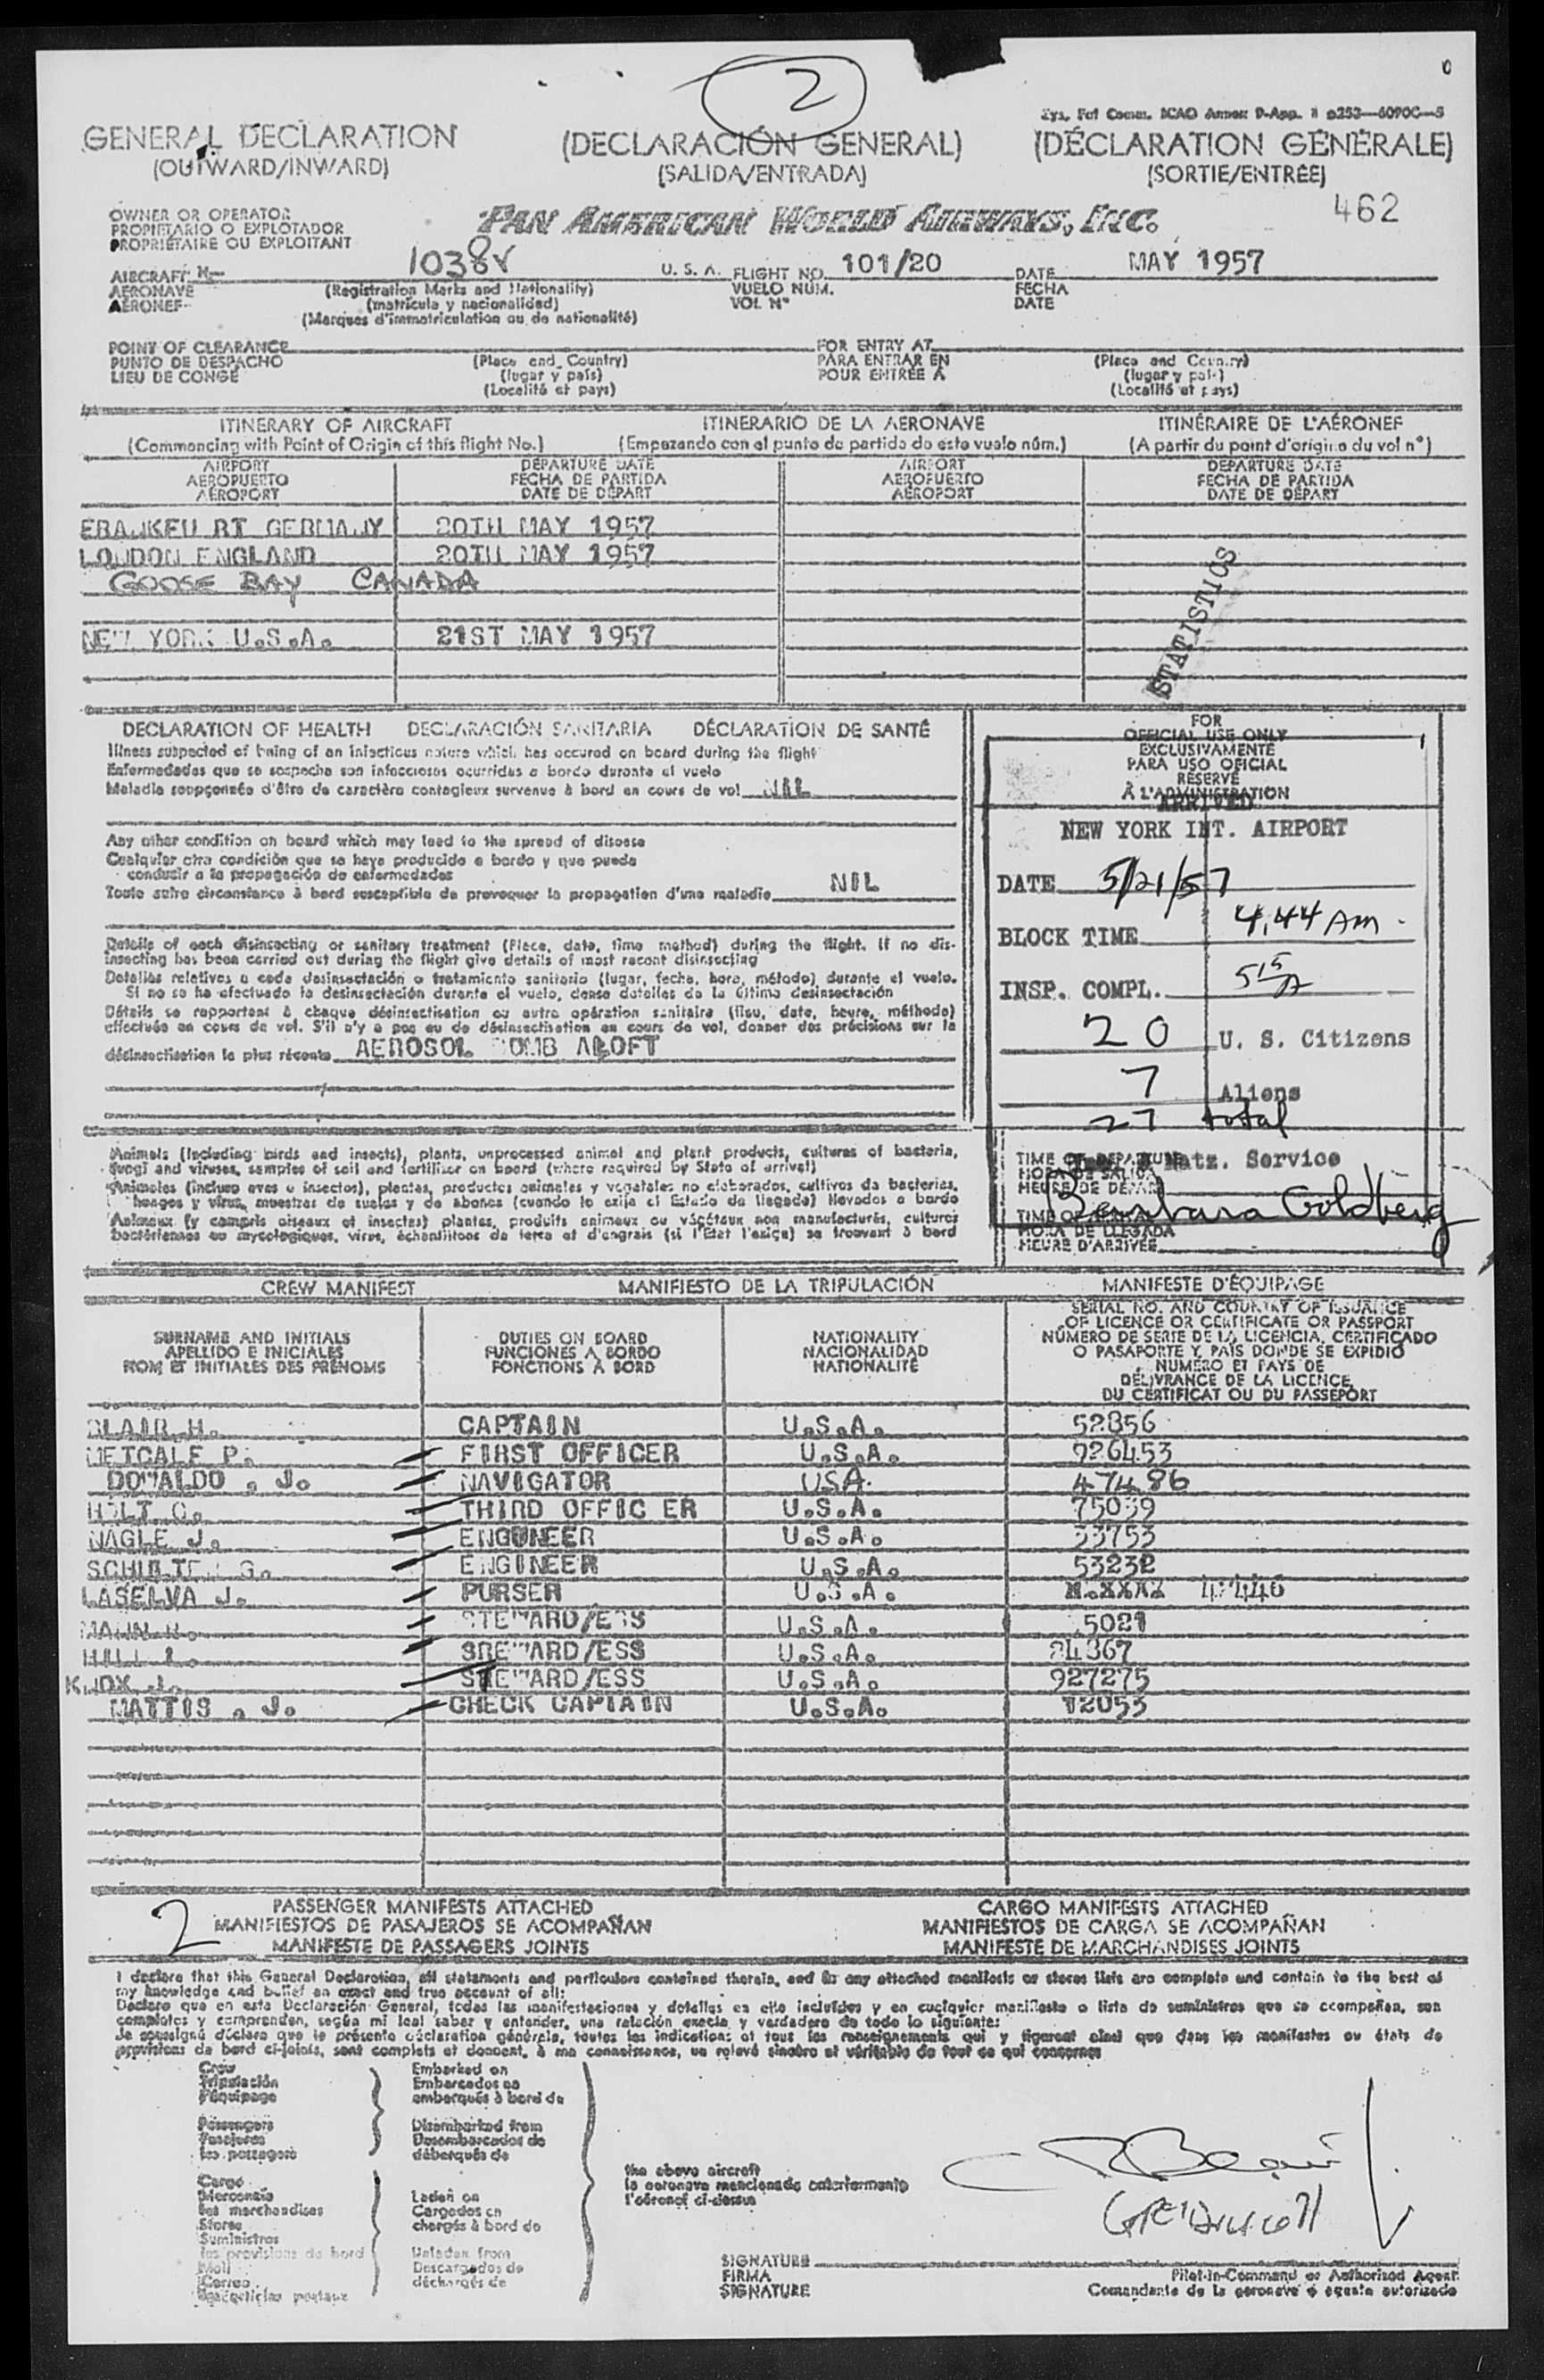 2
Sys. Pat Comm. ICAO Annex 9-App. 1 p253—6090C—5
GENERAL DECLARATION (DECLARACIÓN GENERAL) (DÉCLARATION GÉNÉRALE)
(OUTWARD/INWARD) (SALIDA/ENTRADA) (SORTIE/ENTRÉE)
462
OWNER OR OPERATOR
PROPIETARIO O EXPLOTADOR
PROPRIÉTAIRE OU EXPLOITANT
PAN AMERICAN WORLD AIRWAYS, INC.
AIRCRAFT N— 1038V U. S. A. FLIGHT NO. 101/20 DATE MAY 1957
AERONAVE (Registration Marks and Nationality) VUELO NÚM. FECHA
AÉRONEF (matrícula y nacionalidad) VOL N° DATE
(Marques d'immatriculation ou de nationalité)
POINT OF CLEARANCE FOR ENTRY AT
PUNTO DE DESPACHO (Place and Country) PARA ENTRAR EN (Place and Country)
LIEU DE CONGÉ (lugar y país) POUR ENTRÉE À (lugar y país)
(Localité et pays) (Localité et pays)
ITINERARY OF AIRCRAFT ITINERARIO DE LA AERONAVE ITINÉRAIRE DE L'AÉRONEF
(Commencing with Point of Origin of this flight No.) (Empezando con el punto de partida de este vuelo núm.) (A partir du point d'origine du vol n°)
AIRPORT DEPARTURE DATE AIRPORT DEPARTURE DATE
AEROPUERTO FECHA DE PARTIDA AEROPUERTO FECHA DE PARTIDA
AÉROPORT DATE DE DÉPART AÉROPORT DATE DE DÉPART
FRANKFURT GERMANY 20TH MAY 1957
LONDON ENGLAND 20TH MAY 1957
GOOSE BAY CANADA
NEW YORK U.S.A. 21ST MAY 1957
STATISTICS
DECLARATION OF HEALTH DECLARACIÓN SANITARIA DÉCLARATION DE SANTÉ
Illness suspected of being of an infectious nature which has occured on board during the flight
Enfermedades que se sospecha son infecciosas ocurridas a bordo durante el vuelo
Maladie soupçonnée d'être de caractère contagieux survenue à bord en cours de vol NIL
Any other condition on board which may lead to the spread of disease
Cualquier otra condición que se haya producido a bordo y que pueda
conducir a la propagación de enfermedades
Toute autre circonstance à bord susceptible de provoquer la propagation d'une maladie NIL
Details of each disinsecting or sanitary treatment (Place, date, time method) during the flight. If no dis-
insecting has been carried out during the flight give details of most recent disinsecting
Detalles relativos a cada desinsectación o tratamiento sanitario (lugar, fecha, hora, método) durante el vuelo.
Si no se ha efectuado la desinsectación durante el vuelo, dense detalles de la última desinsectación
Détails se rapportant à chaque désinsectisation ou autre opération sanitaire (lieu, date, heure, méthode)
effectuée en cours de vol. S'il n'y a pas eu de désinsectisation en cours de vol, donner des précisions sur la
désinsectisation la plus récente AEROSOL BOMB ALOFT
FOR
OFFICIAL USE ONLY
EXCLUSIVAMENTE
PARA USO OFICIAL
RÉSERVÉ
À L'ADMINISTRATION
ARRIVED
NEW YORK INT. AIRPORT
DATE 5/21/57
BLOCK TIME 4.44 AM
INSP. COMPL. 5 15 A
20 U. S. Citizens
7 Aliens
27 total
Natz. Service
Barbara Goldberg
TIME OF DEPARTURE
HORA DE SALIDA
HEURE DE DÉPART
TIME OF
HORA DE LLEGADA
HEURE D'ARRIVÉE
Animals (including birds and insects), plants, unprocessed animal and plant products, cultures of bacteria,
fungi and viruses, samples of soil and fertilizer on board (where required by State of arrival)
Animales (incluso aves o insectos), plantas, productos animales y vegetales no elaborados, cultivos de bacterias,
hongos y virus, muestras de suelos y de abonos (cuando lo exija el Estado de llegada) llevados a bordo
Animaux (y compris oiseaux et insectes) plantes, produits animaux ou végétaux non manufacturés, cultures
bactériennes ou mycologiques, virus, échantillons de terre et d'engrais (si l'Etat l'exige) se trouvant à bord
CREW MANIFEST MANIFIESTO DE LA TRIPULACIÓN MANIFESTE D'ÉQUIPAGE
SURNAME AND INITIALS DUTIES ON BOARD NATIONALITY SERIAL NO. AND COUNTRY OF ISSUANCE
APELLIDO E INICIALES FUNCIONES A BORDO NACIONALIDAD OF LICENCE OR CERTIFICATE OR PASSPORT
NOM ET INITIALES DES PRÉNOMS FONCTIONS À BORD NATIONALITÉ NÚMERO DE SERIE DE LA LICENCIA, CERTIFICADO
O PASAPORTE Y PAÍS DONDE SE EXPIDIÓ
NUMÉRO ET PAYS DE
DÉLIVRANCE DE LA LICENCE,
DU CERTIFICAT OU DU PASSEPORT
BLAIR H. CAPTAIN U.S.A. 52856
METCALF P. FIRST OFFICER U.S.A. 926453
DONALDO , J. NAVIGATOR USA. 47486
HOLT G. THIRD OFFIC ER U.S.A. 75039
NAGLE J. ENGUNEER U.S.A. 33753
G. ENGINEER U.S.A. 53232
LASELVA J. PURSER U.S.A.
MANN STEWARD/ESS U.S.A. 5021
HILL STEWARD/ESS U.S.A. 84367
KNOX J. STEWARD/ESS U.S.A. 927275
MATTIS , J. CHECK CAPTAIN U.S.A. 12053
2
PASSENGER MANIFESTS ATTACHED CARGO MANIFESTS ATTACHED
MANIFIESTOS DE PASAJEROS SE ACOMPAÑAN MANIFIESTOS DE CARGA SE ACOMPAÑAN
MANIFESTE DE PASSAGERS JOINTS MANIFESTE DE MARCHANDISES JOINTS
I declare that this General Declaration, all statements and particulars contained therein, and in any attached manifests or stores lists are complete and contain to the best of
my knowledge and belief an exact and true account of all:
Declaro que en esta Declaración General, todas las manifestaciones y detalles en ella incluídos y en cualquier manifiesto o lista de suministros que se acompañan, son
completos y comprenden, según mi leal saber y entender, una relación exacta y verdadera de todo lo siguiente:
Je soussigné déclare que la présente déclaration générale, toutes les indications et tous les renseignements qui y figurent ainsi que dans les manifestes ou états de
provisions de bord ci-joints, sont complets et donnent, à ma connaissance, un relevé sincère et véritable de tout ce qui concerne:
Crew Embarked on
Tripulación Embarcados en
l'équipage embarqués à bord de
Passengers Disembarked from
Pasajeros Desembarcados de
les passagers débarqués de
the above aircraft
la aeronave mencionada anteriormente
l'aéronef ci-dessus
Cargo
Mercancía Laden on
les marchandises Cargados en
Stores chargés à bord de
Suministros
les provisions de bord Unladen from
Mail Descargados de
Correo déchargés de
Blair
SIGNATURE
FIRMA Pilot-in-Command or Authorized Agent
SIGNATURE Comandante de la aeronave o agente autorizado